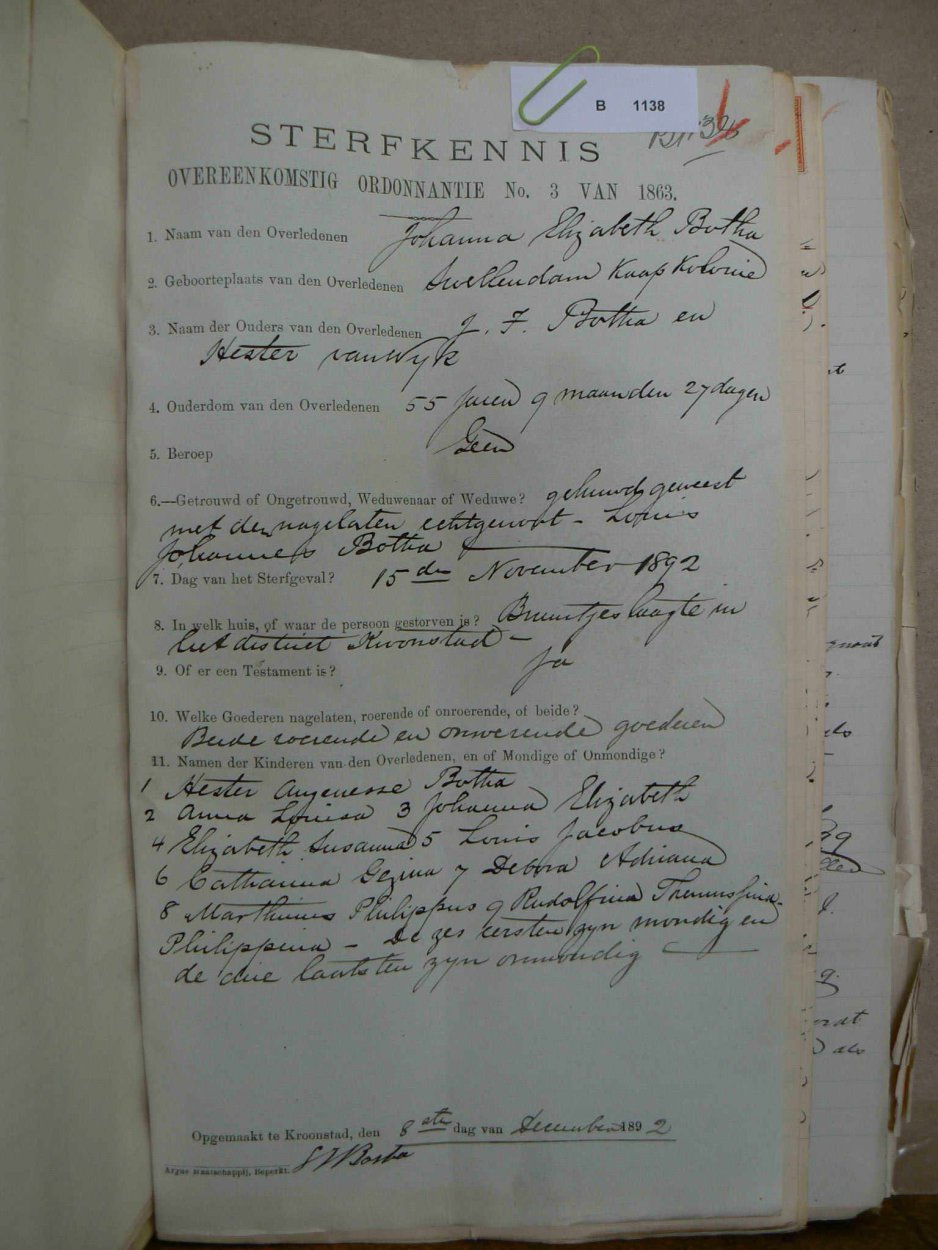 B 1138
STERFKENNIS
OVEREENKOMSTIG ORDONNANTIE No. 3 VAN 1863.
1. Naam van den Overledenen Johanna Elizabeth Botha
2. Geboorteplaats van den Overledenen Swellendam Kaap Kolonie
3. Naam der Ouders van den Overledenen J. F. Botha en
Hester van Wyk
4. Ouderdom van den Overledenen 55 Jaren 9 maanden 27 dagen
5. Beroep Geen
6.—Getrouwd of Ongetrouwd, Weduwenaar of Weduwe? gehuwd geweest
met den nagelaten echtgenoot - Louis
Johannes Botha
7. Dag van het Sterfgeval? 15de November 1892
8. In welk huis, of waar de persoon gestorven is? Bruintjeslaagte in
het district Kroonstad -
9. Of er een Testament is? Ja
10. Welke Goederen nagelaten, roerende of onroerende, of beide?
Beide roerende en onroerende goederen
11. Namen der Kinderen van den Overledenen, en of Mondige of Onmondige?
1 Hester Botha
2 Anna Louisa 3 Johanna Elizabeth
4 Elizabeth Susanna 5 Louis Jacobus
6 Catharina Gezina 7 Debora Adriana
8 Marthinus Philippus 9 Rudolfina
Philippina - De zes eersten zyn mondig en
de drie laatsten zyn onmondig
Opgemaakt te Kroonstad, den 8ste dag van December 1892
Botha
Argus Maatschappij, Beperkt.